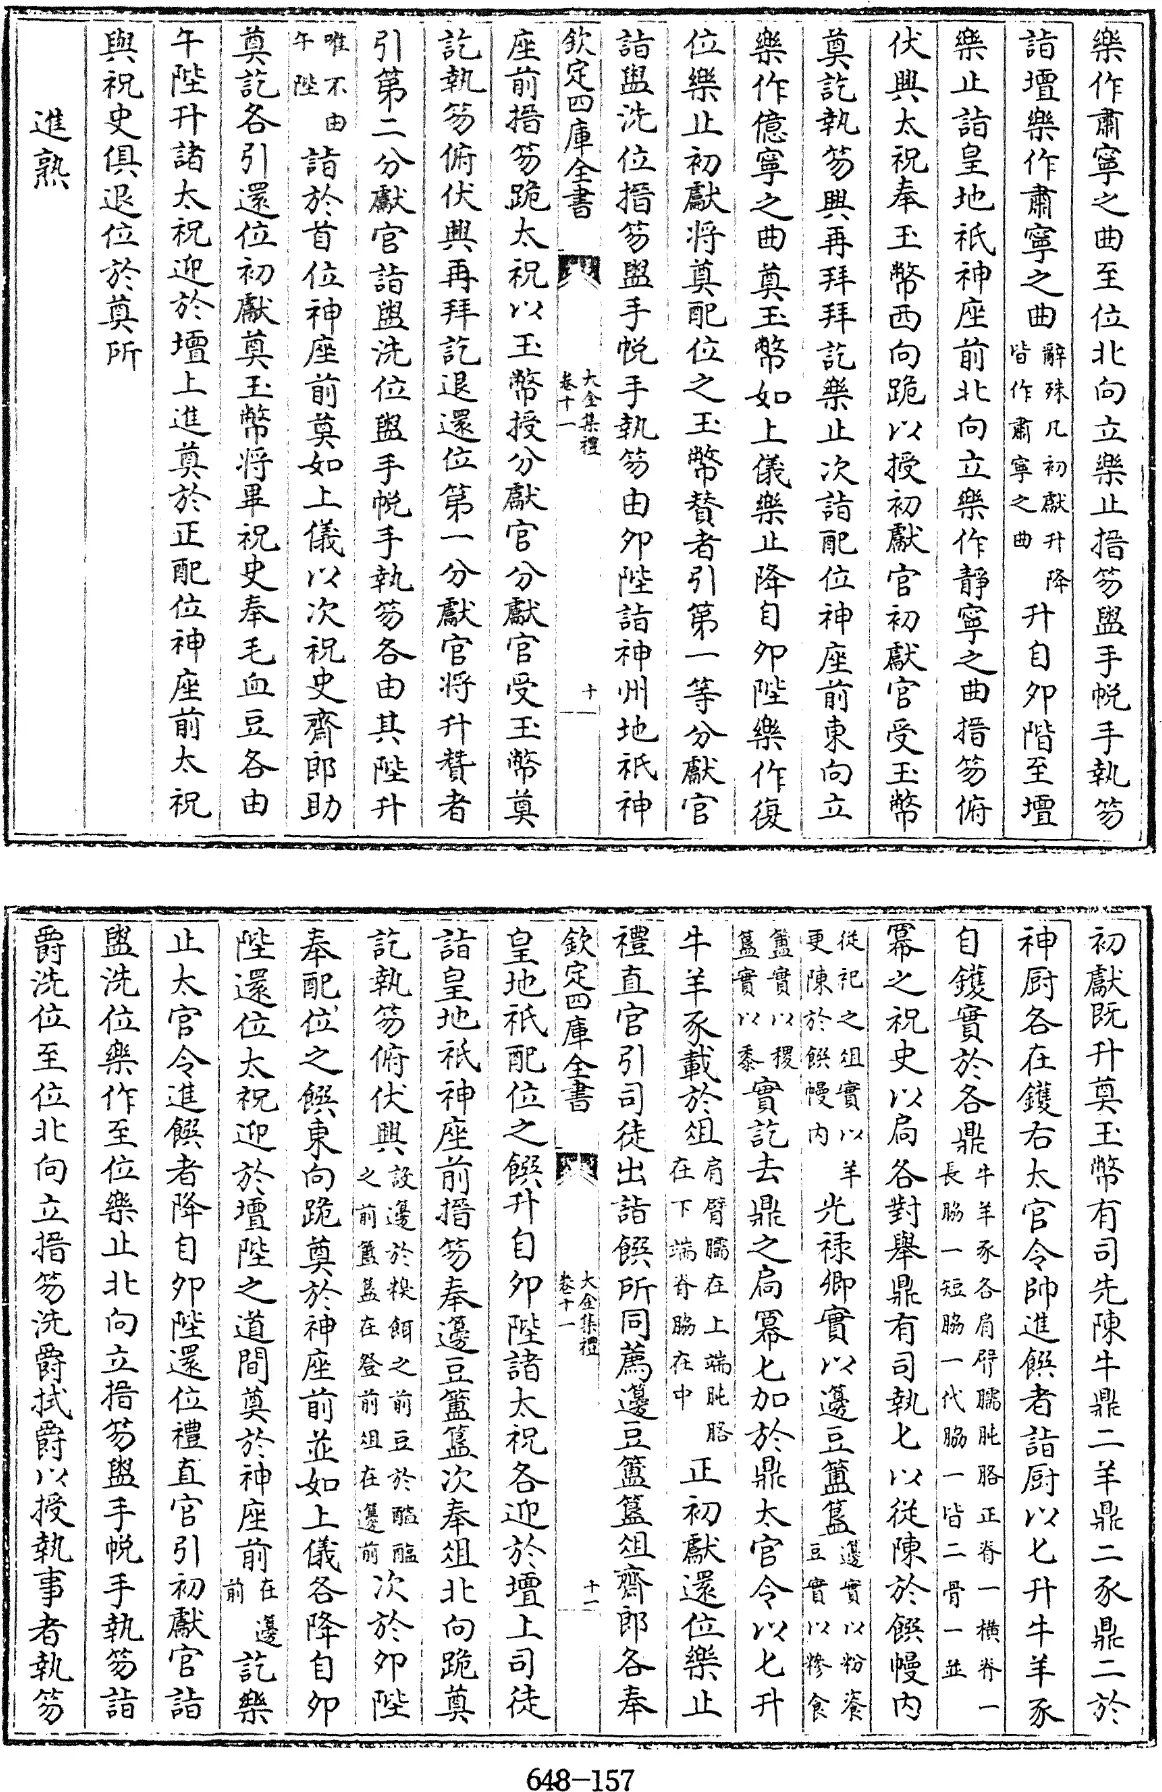 樂作肅寧之曲至位北向立樂止搢笏盥手帨手執笏
詣壇樂作肅寧之曲辭殊凡初獻升降皆作肅寧之曲升自卯階至壇
樂止詣皇地祇神座前北向立樂作靜寧之曲搢笏俯
伏興太祝奉玉幣西向跪以授初獻官初獻官受玉幣
奠訖執笏興再拜拜訖樂止次詣配位神座前東向立
樂作億寧之曲奠玉幣如上儀樂止降自卯陛樂作復
位樂止初獻將奠配位之玉幣贊者引第一等分獻官
詣盥洗位搢笏盥手帨手執笏由卯陛詣神州地祇神
欽定四庫全書 大金集禮卷十一 十
座前搢笏跪太祝以玉幣授分獻官分獻官受玉幣奠
訖執笏俯伏興再拜訖退還位第一分獻官將升贊者
引第二分獻官詣盥洗位盥手帨手執笏各由其陛升
唯不由午陛詣於首位神座前奠如上儀以次祝史齋郎助
奠訖各引還位初獻奠玉幣將畢祝史奉毛血豆各由
午陛升諸太祝迎於壇上進奠於正配位神座前太祝
與祝史俱退位於奠所
進熟
初獻既升奠玉幣有司先陳牛鼎二羊鼎二豕鼎二於
神厨各在鑊右太官令帥進饌者詣厨以匕升牛羊豕
自鑊實於各鼎牛羊豕各肩臂臑肫胳正脊一橫脊一長脇一短脇一代脇一皆二骨一並
冪之祝史以扃各對舉鼎有司執匕以從陳於饌幔内
從祀之俎實以羊更陳於饌幔内光禄卿實以籩豆簠簋籩實以粉餈豆實以糝食
簠實以稷簋實以黍實訖去鼎之扃冪匕加於鼎太官令以匕升
牛羊豕載於俎肩臂臑在上端肫胳在下端脊脇在中正初獻還位樂止
禮直官引司徒出詣饌所同薦籩豆簠簋俎齋郎各奉
欽定四庫全書 大金集禮卷十一 十一
皇地祇配位之饌升自卯陛諸太祝各迎於壇上司徒
詣皇地祇神座前搢笏奉籩豆簠簋次奉俎北向跪奠
訖執笏俯伏興設籩於糗餌之前豆於醓醢之前簠簋在㽅前俎在籩前次於卯陛
奉配位之饌東向跪奠於神座前並如上儀各降自卯
陛還位太祝迎於壇陛之道間奠於神座前在籩前訖樂
止太官令進饌者降自卯陛還位禮直官引初獻官詣
盥洗位樂作至位樂止北向立搢笏盥手帨手執笏詣
爵洗位至位北向立搢笏洗爵拭爵以授執事者執笏
648-157